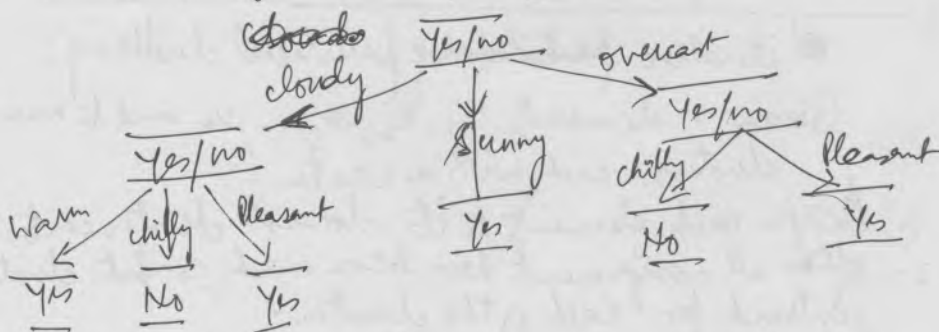 Yes/no
cloudy
overcast
Yes/no
Sunny
Yes/no
Warm
chilly
Pleasant
chilly
Pleasant
Yes
No
Yes
Yes
No
Yes